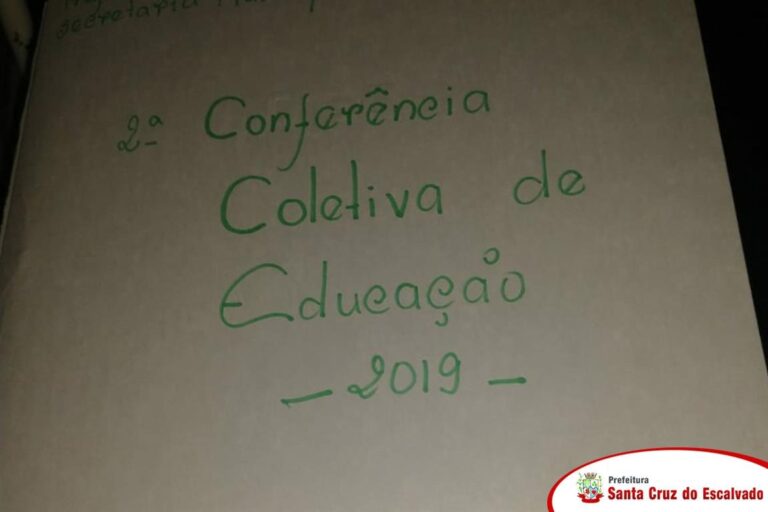 secretaria
2ª Conferência
Coletiva de
Educação
- 2019 -
Prefeitura
Santa Cruz do Escalvado